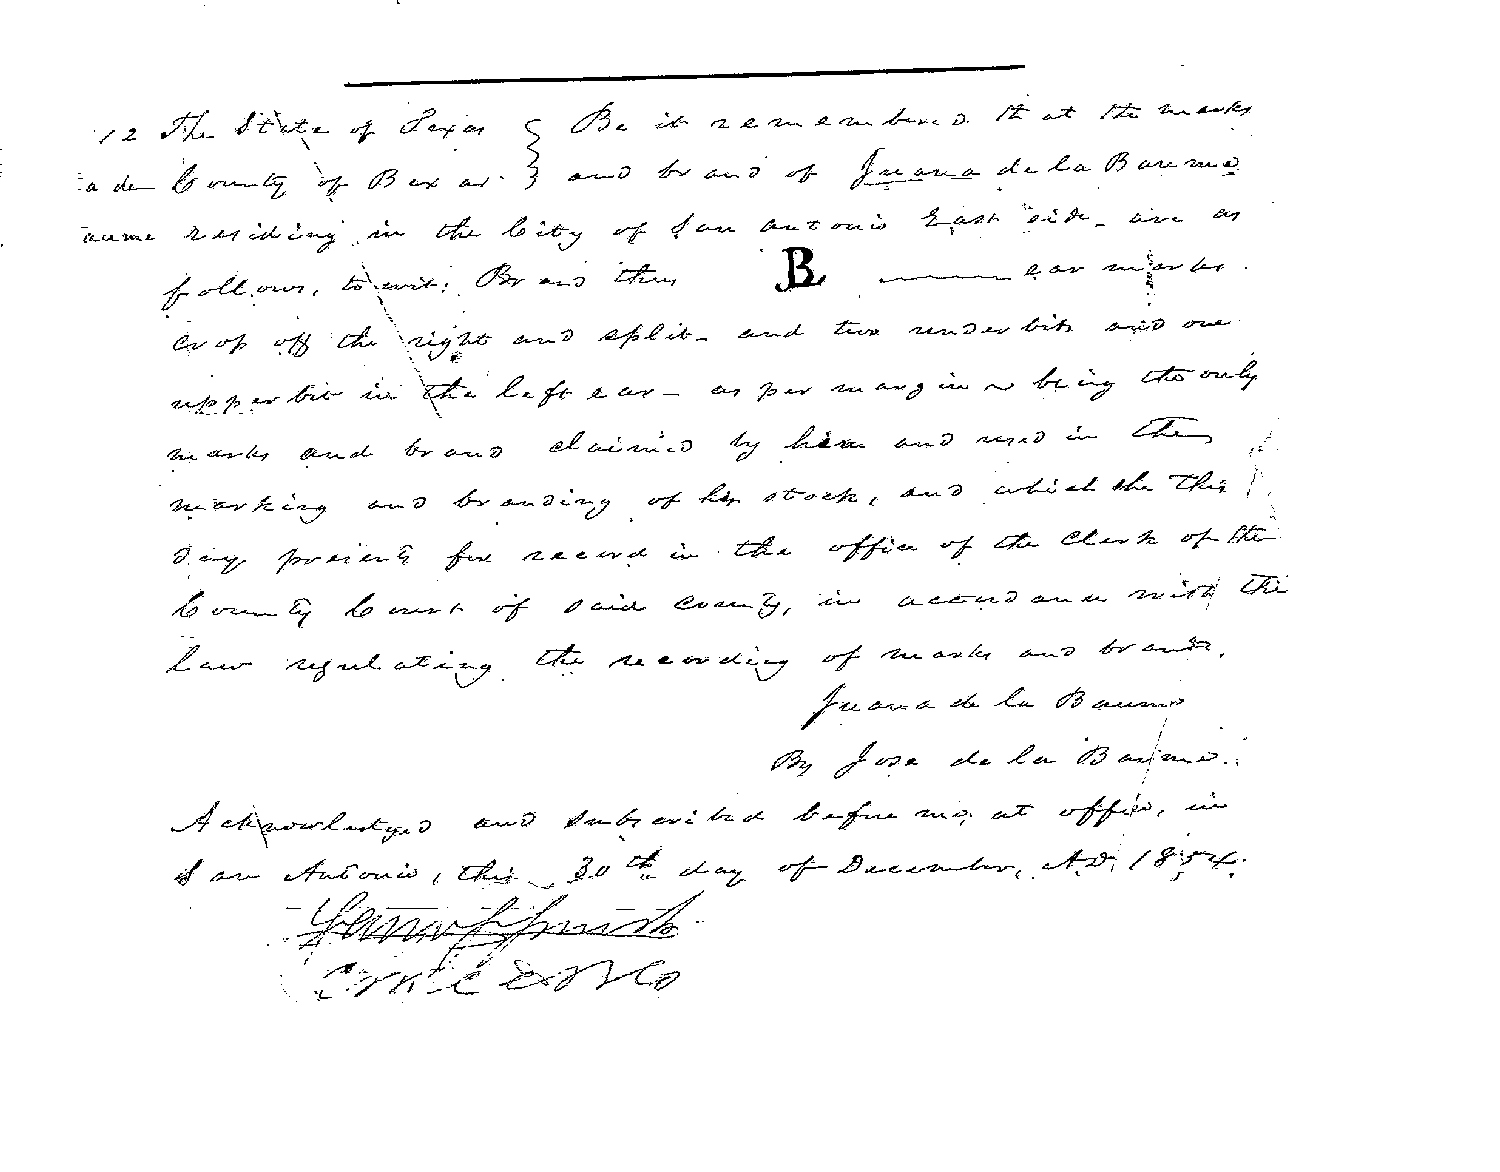 12 The State of Texas } Be it remembered that the marks
a de County of Bexar } and brand of Juana de la Baume
aume residing in the City of San Antonio East side are as
follows, to wit: Brand thus B ear marks
crop off the right and split - and two underbits and one
upper bit in the left ear - as per margin being the only
marks and brand claimed by him and used in the
marking and branding of his stock, and which she this
day presents for record in the office of the Clerk of the
County Court of said County, in accordance with the
law regulating the recording of marks and brands.
Juana de la Baume
By Jose de la Baume.
Acknowledged and subscribed before me, at office, in
San Antonio, this 30th day of December, A.D. 1854.
Smith